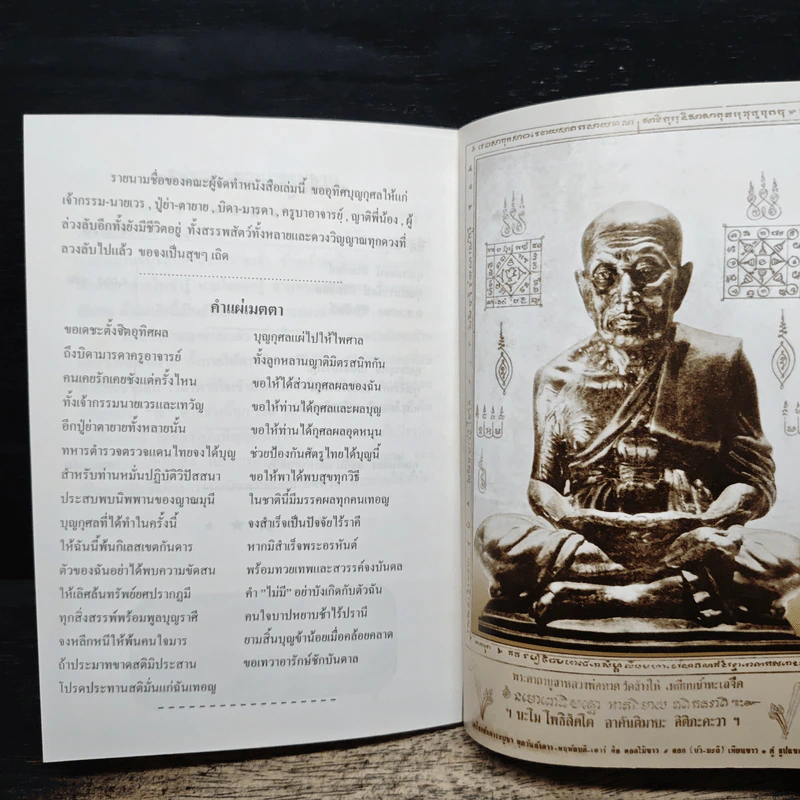 รายนามชื่อของคณะผู้จัดทำหนังสือเล่มนี้ ขออุทิศบุญกุศลให้แก่
เจ้ากรรม-นายเวร , ปู่ย่า-ตายาย , บิดา-มารดา , ครูบาอาจารย์ , ญาติพี่น้อง , ผู้
ล่วงลับอีกทั้งยังมีชีวิตอยู่ ทั้งสรรพสัตว์ทั้งหลายและดวงวิญญาณทุกดวงที่
ลวงลับไปแล้ว ขอจงเป็นสุขๆ เถิด
คำแผ่เมตตา
ขอเดชะตั้งจิตอุทิศผล บุญกุศลแผ่ไปให้ไพศาล
ถึงบิดามารดาครูอาจารย์ ทั้งลูกหลานญาติมิตรสนิทกัน
คนเคยรักเคยชังแต่ครั้งไหน ขอให้ได้ส่วนกุศลผลของฉัน
ทั้งเจ้ากรรมนายเวรและเทวัญ ขอให้ท่านได้กุศลและผลบุญ
อีกปู่ย่าตายายทั้งหลายนั้น ขอให้ท่านได้กุศลผลอุดหนุน
ทหารตำรวจตรวจแดนไทยจงได้บุญ ช่วยป้องกันศัตรูไทยได้บุญนี้
สำหรับท่านหมั่นปฏิบัติวิปัสสนา ขอให้พาได้พบสุขทุกวิธี
ประสบพบนิพพานของญาณมุนี ในชาตินี้มีมรรคผลทุกคนเทอญ
บุญกุศลที่ได้ทำในครั้งนี้ จงสำเร็จเป็นปัจจัยไร้ราคี
ให้ฉันนี้พ้นกิเลสเขตกันดาร หากมิสำเร็จพระอรหันต์
ตัวของฉันอย่าได้พบความขัดสน พร้อมทวยเทพและสวรรค์จงบันดล
ให้เลิศล้นทรัพย์ยศปรากฏมี คำ "ไม่มี" อย่าบังเกิดกับตัวฉัน
ทุกสิ่งสรรพ์พร้อมพูลบุญราศี คนใจบาปหยาบช้าไร้ปรานี
จงหลีกหนีให้พ้นคนใจมาร ยามสิ้นบุญข้าน้อยเมื่อคล้อยคลาด
ถ้าประมาทขาดสติมิประสาน ขอเทวาอารักษ์ชักบันดาล
โปรดประทานสติมั่นแก่ฉันเทอญ
พระคาถาบูชาหลวงพ่อทวด วัดช้างให้ เหยียบน้ำทะเลจืด
ฯ นะโม โพธิสัตโต อาคันติมายะ อิติภะคะวา ฯ